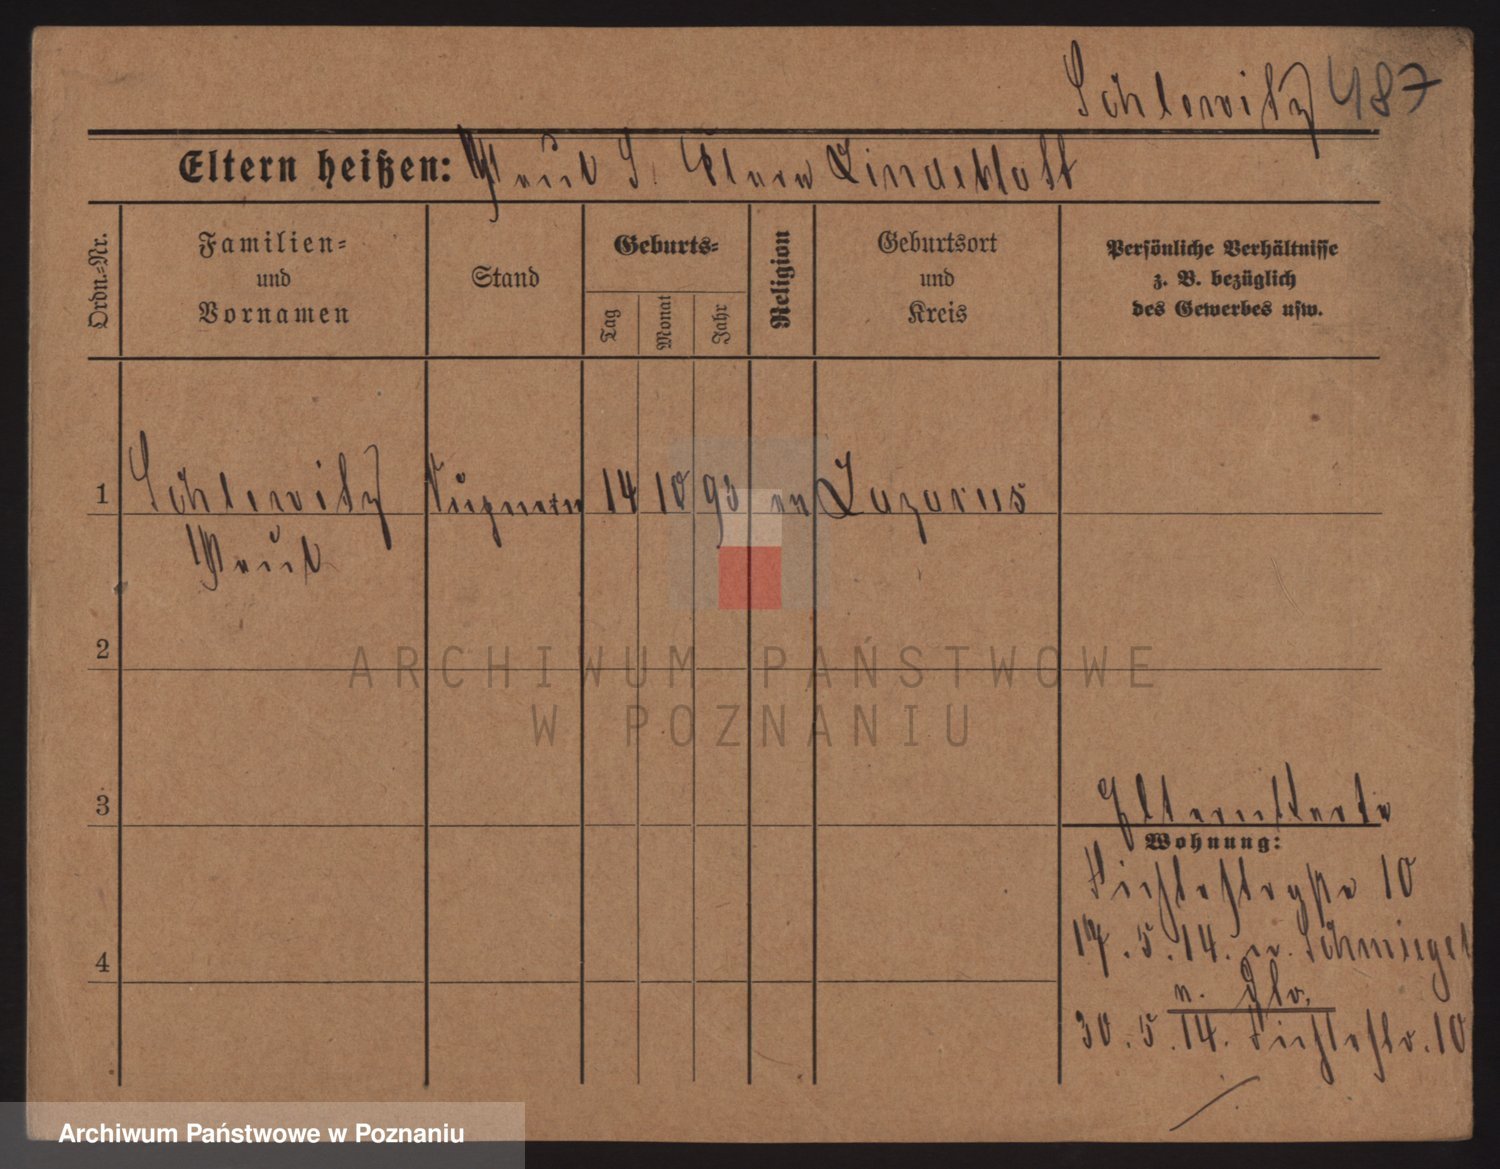 Schlewitz 487
Eltern heißen: Paul S. Clara Lindeblatt
Ordn.-Nr.
Familien-
und
Vornamen
Stand
Geburts-
Tag
Monat
Jahr
Religion
Geburtsort
und
Kreis
Persönliche Verhältnisse
z. B. bezüglich
des Gewerbes usw.
1 Schlewitz 14 10 93 ev Lazarus
Paul
2
ARCHIWUM PAŃSTWOWE
W POZNANIU
3
Elternkarte
Wohnung:
Fichtestraße 10
4
17. 5. 14. n. Schmiegel
30. 5. 14. Fichtestr. 10
Archiwum Państwowe w Poznaniu